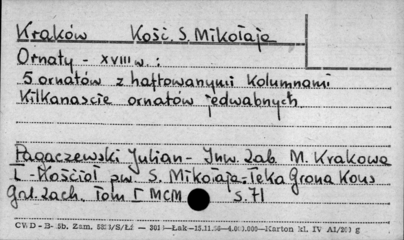 Kraków Kość. S. Mikołaja
Ornaty - XVIII w. :
5 ornatów z haftowanymi kolumnami
Kilkanascie ornatów jedwabnych
Pagaczewski Julian - Inw. Zab. M. Krakowa
L - Kościoł pw. S. Mikołaja, Teka Grona Kons
Gal. Zach. Tom I MCM s. 71
CWD - B- 5b. Zam. Łak - Karton kl. IV A1/200 g